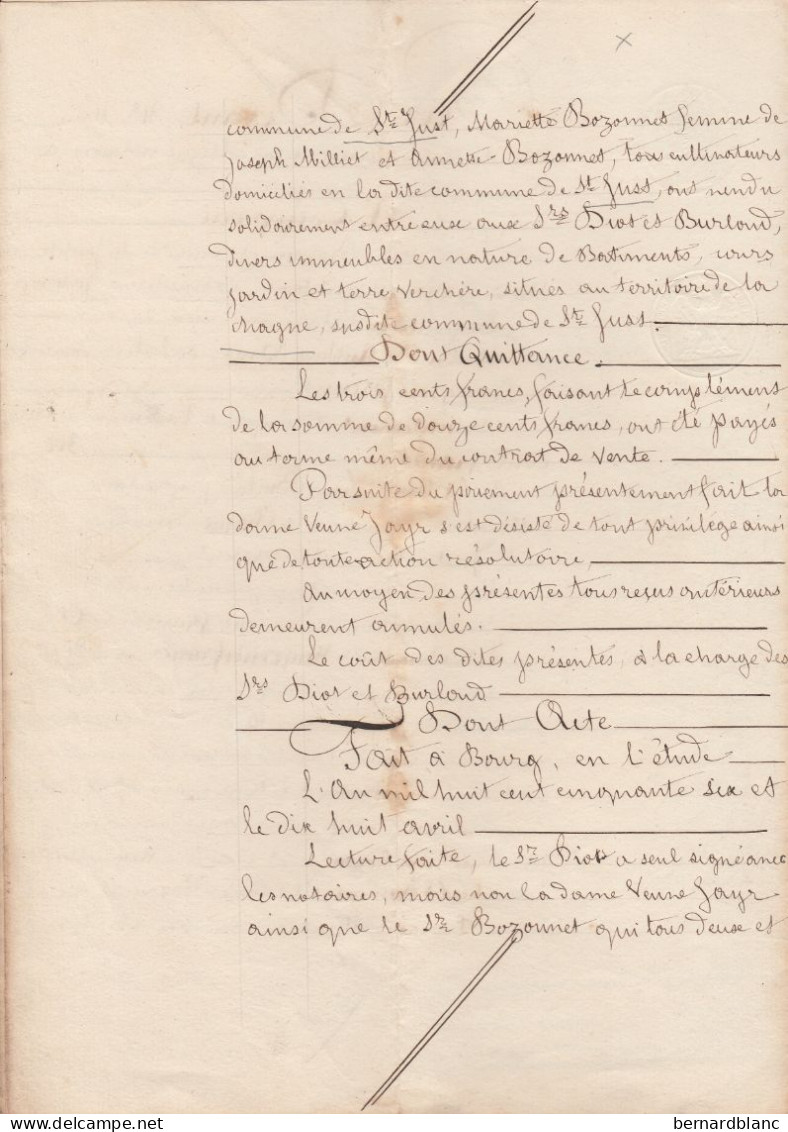 commune de St Just, Mariette Bozonnet femme de
Joseph Milliet et Annette Bozonnet, tous cultivateurs
domiciliés en la dite commune de St Just, ont vendu
solidairement entre eux aux Srs Diot et Burloud,
divers immeubles en nature de Batiments, cours
jardin et terre verchère, situés au territoire de la
Magne, susdite commune de St Just.
Dont Quittance.
Les trois cents francs, faisant le complément
de la somme de douze cents francs, ont été payés
au terme même du contrat de vente.
Par suite du paiement présentement fait la
dame Veuve Jayr s'est désisté de tout privilége ainsi
que de toute action résolutoire
au moyen des présentes tous reçus antérieurs
demeurent annulés.
Le coût des dites présentes, à la charge des
Srs Diot et Burloud
Dont Acte
Fait à Bourg, en l'étude
L'An mil huit cent cinquante six et
le dix huit avril
Lecture faite, le Sr Diot a seul signé avec
les notaires, mais non la dame Veuve Jayr
ainsi que le Sr Bozonnet qui tous deux et
bernardblanc